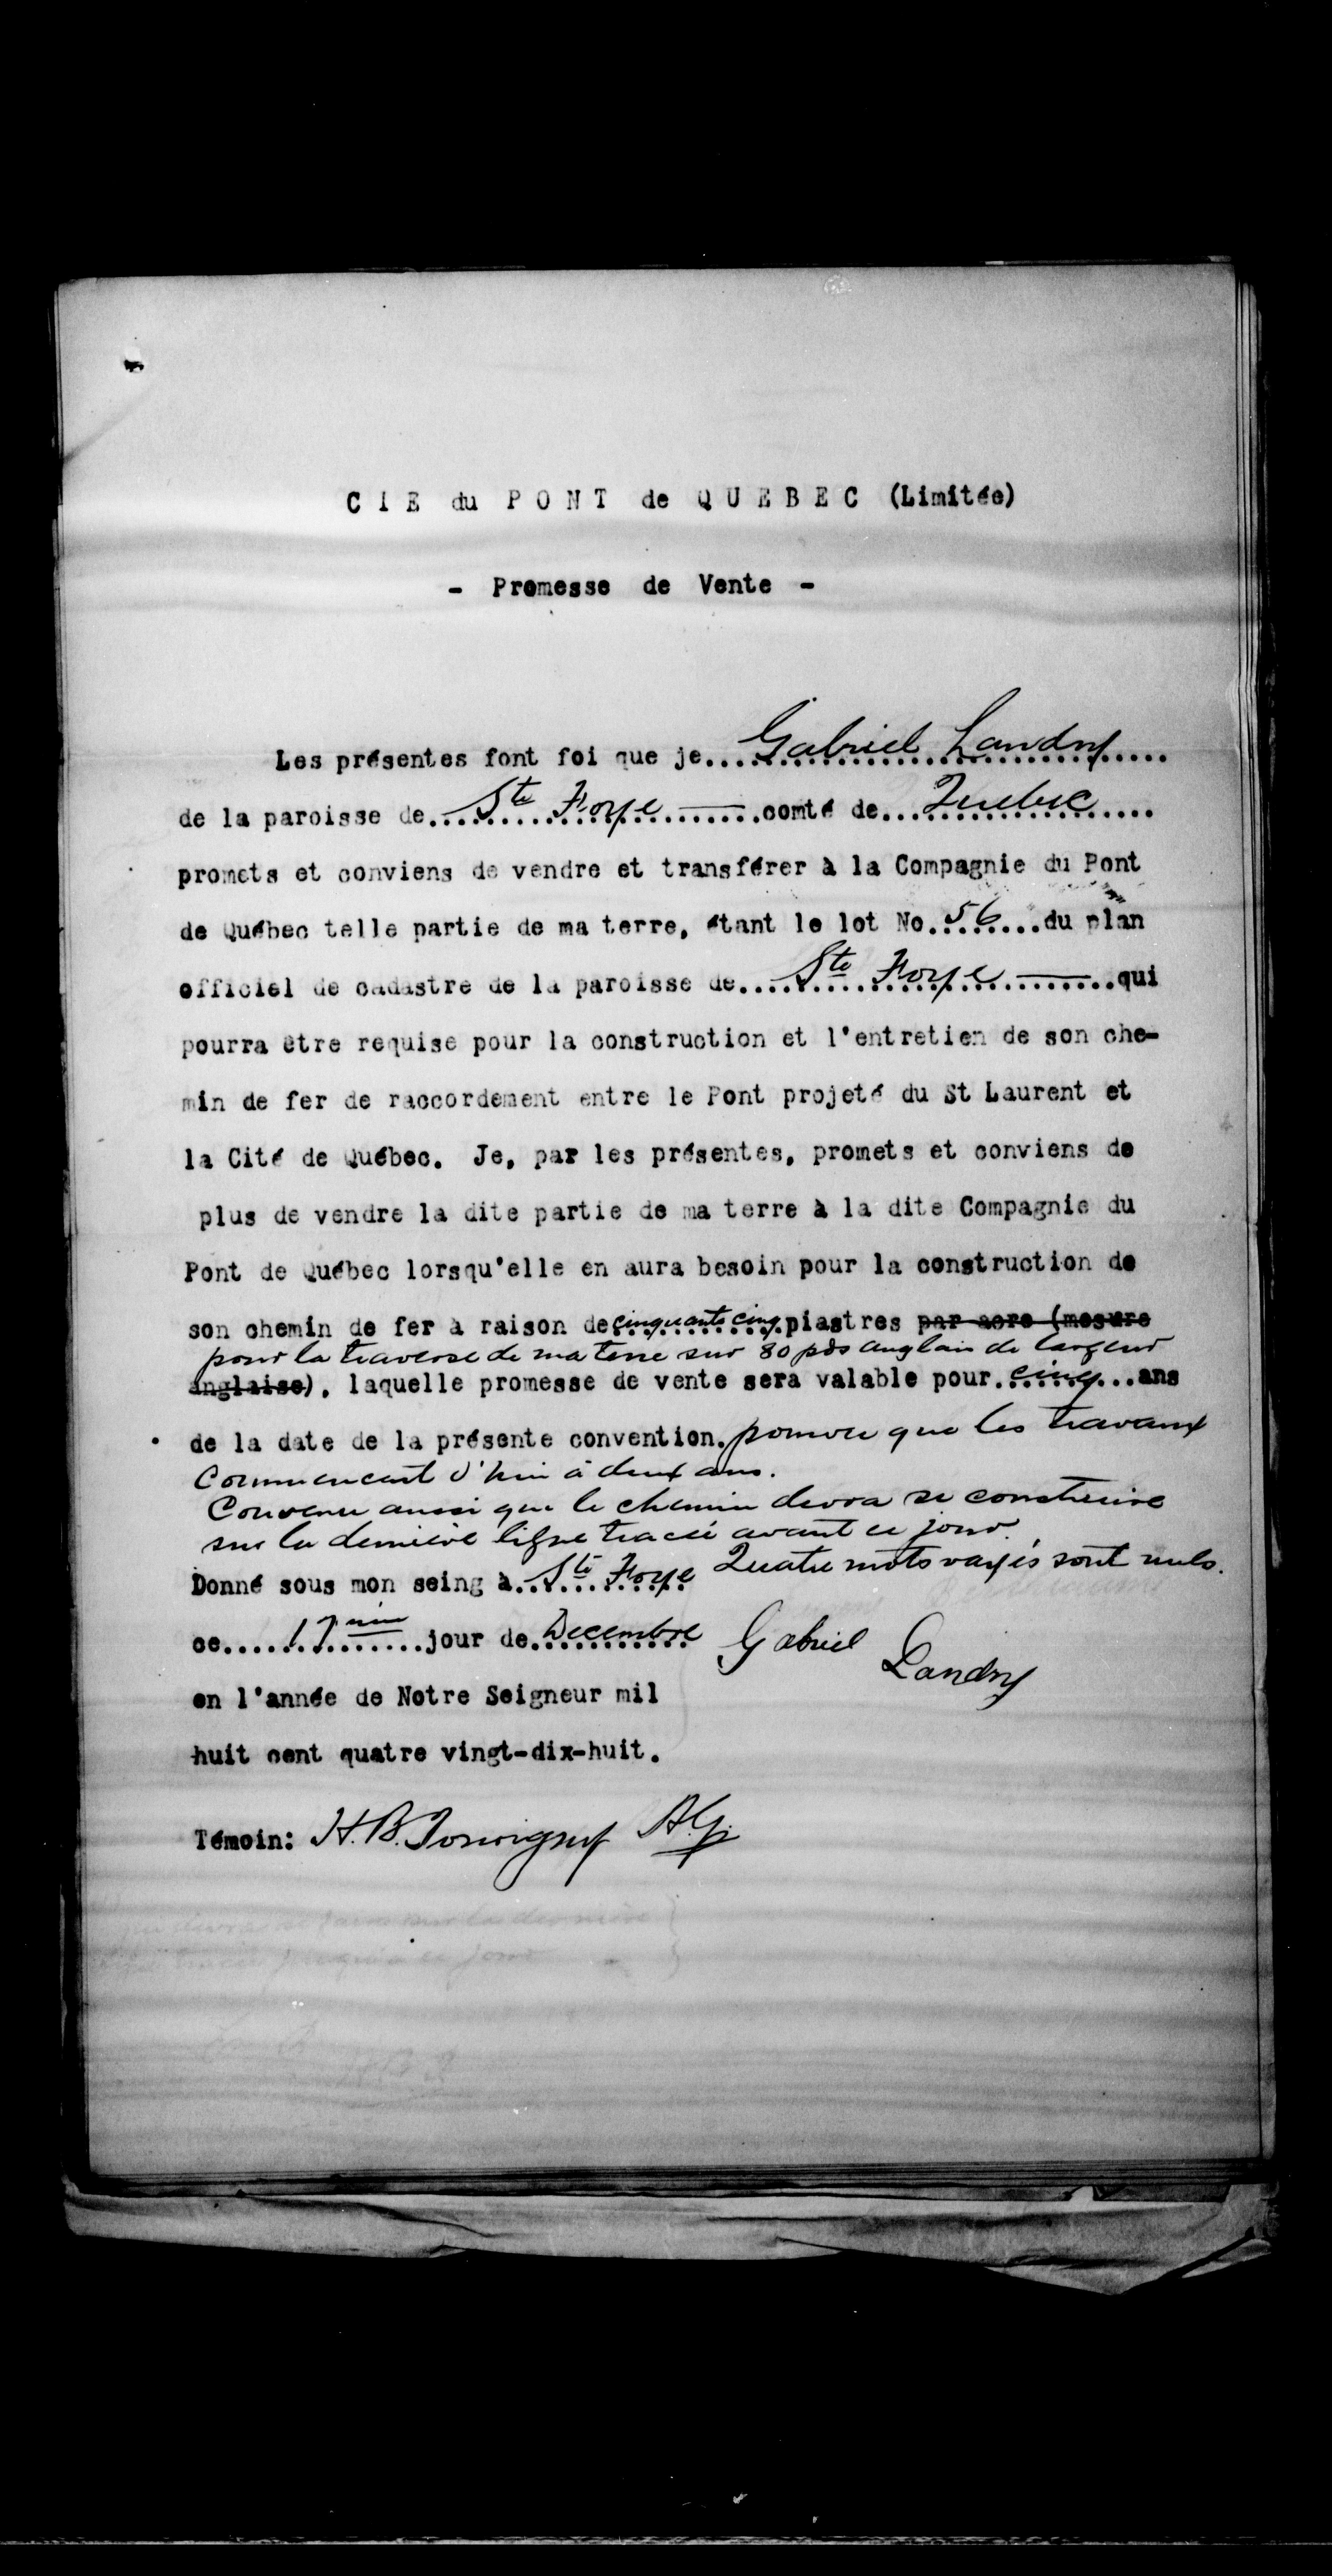 CIE du PONT de QUEBEC (Limitée)
- Promesse de Vente -
Les présentes font foi que je....Gabriel Landry....
de la paroisse de....Ste Foye....comté de....Quebec....
promets et conviens de vendre et transférer à la Compagnie du Pont
de Québec telle partie de ma terre, étant le lot No.56...du plan
officiel de cadastre de la paroisse de....Ste Foye....qui
pourra etre requise pour la construction et l'entretien de son che-
min de fer de raccordement entre le Pont projeté du St Laurent et
la Cité de Québec. Je, par les présentes, promets et conviens de
plus de vendre la dite partie de ma terre à la dite Compagnie du
Pont de Québec lorsqu'elle en aura besoin pour la construction de
son chemin de fer à raison de cinquante cinq piastres par acre (mesure
pour la traverse de ma terre sur 80 pds anglais de largeur
anglaise), laquelle promesse de vente sera valable pour..cinq...ans
de la date de la présente convention. pourvu que les travaux
commencent d'hui à deux ans.
Convenu aussi que le chemin devra se construire
sur la dernière ligne tracée avant ce jour.
Quatre mots rayés sont nuls.
Donné sous mon seing à..Ste Foye
ce....17ième....jour de.Decembre
Gabriel Landry
en l'année de Notre Seigneur mil
huit cent quatre vingt-dix-huit.
Témoin: H. B.